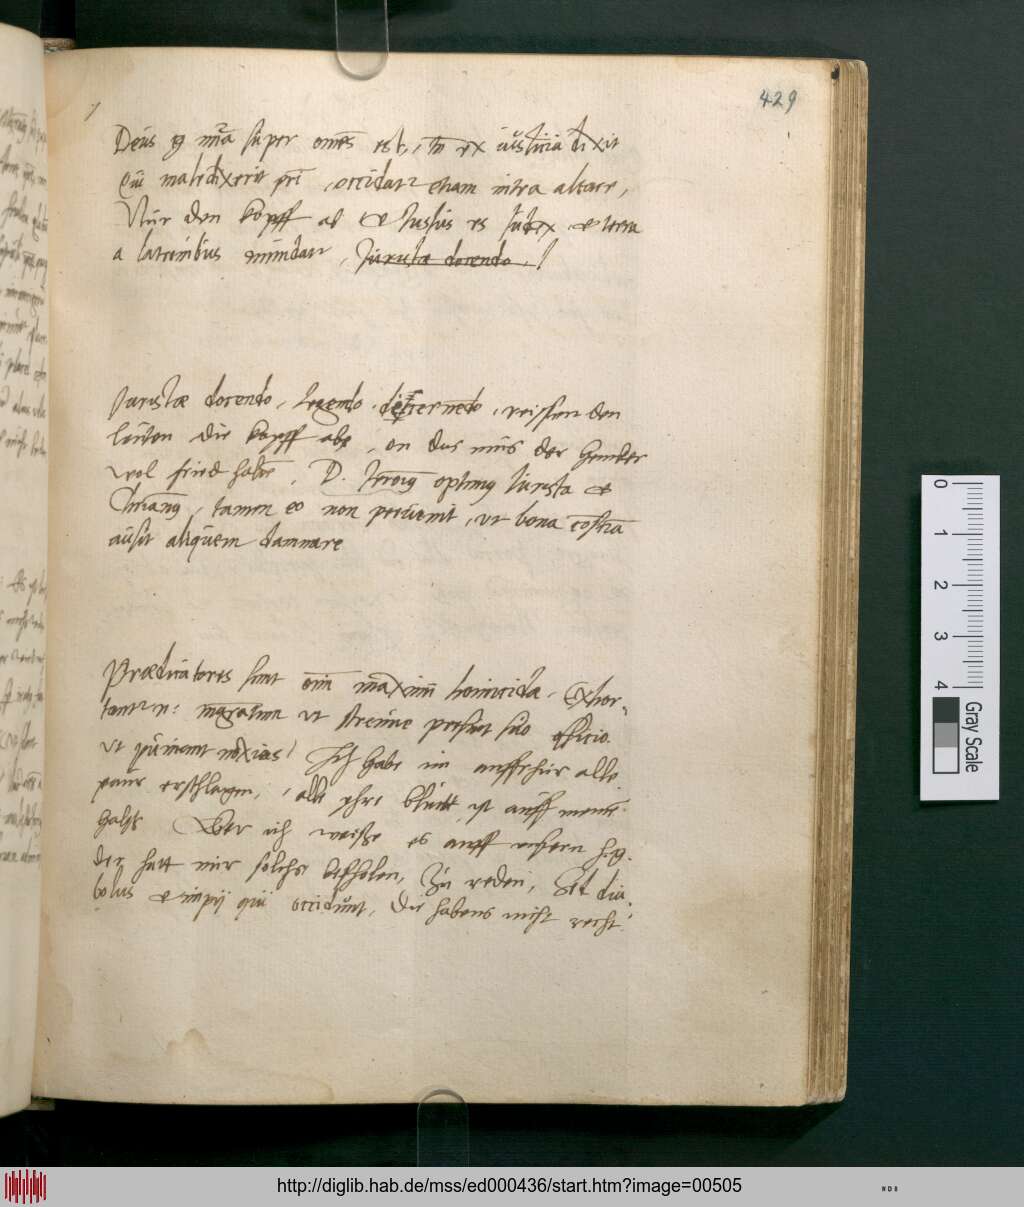 429
Deus q̃ m̃ia super om̃es est, tñ ex iusticia dixit
Qui maledixerit pr̃i, occidatur etiam intra altare,
Nur den kopff ab et Iustus es Iudex et terra
a latronibus mundatur, Iuristae docendo.
Juristae docendo, legendo, discernendo, reissen den
leuten die kopff abe, on das uns der hencker
wol fried habe. D. Ieroñ optimq Iurista et
Christianq, tamen eo non peruenit, ut bona conscia
ausit aliquem damnare
Praedicatores sunt omũ maximi homicidae. Exhor-
tantur n: magratum ut strenue praesint suo officio.
ut puniant noxios / Ich habe im auffrhur alle
paur erschlagen, alle yhre blutt ist auff meinẽ
halss Aber ich weisse es auff unsern h.g.
der hatt mir solchs befholen, zu reden, Sed dia-
bolus et impij qui occidunt, Die habens nicht recht.
0 1 2 3 4
Gray Scale
http://diglib.hab.de/mss/ed000436/start.htm?image=00505